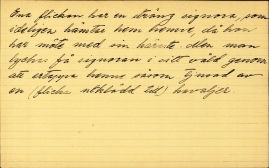 Ena flickan har en sträng signora, som
ideligen hämtar hem henne, då hon
har möte med sin käraste. Men man
lyckas få signoran i sitt våld genom
att ertappa henne såsom tjusad av
en (flicka utklädd till) kavaljer